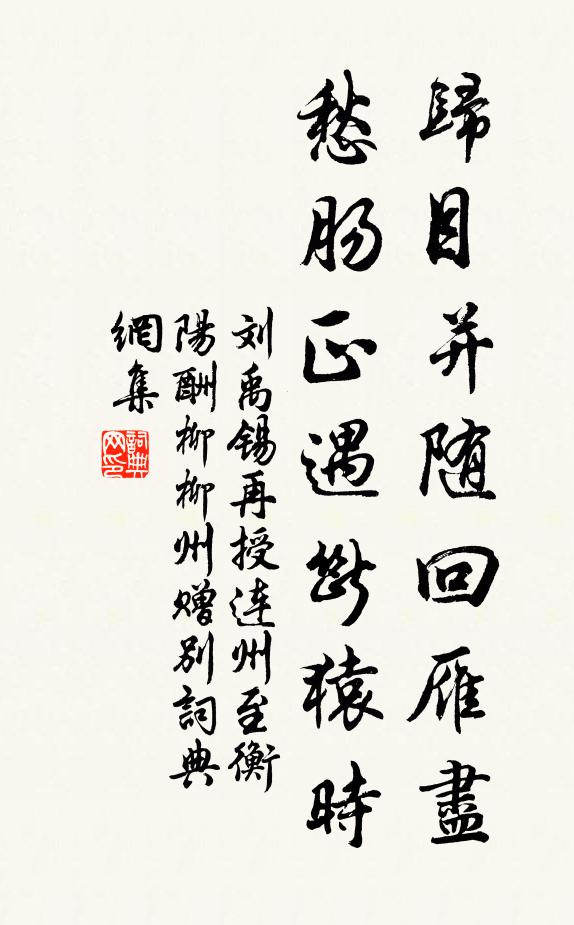 歸目并随回雁盡
愁肠正遇断猿時
刘禹锡再授连州至衡
陽酬柳柳州赠别詞典
網集
詞典
网印